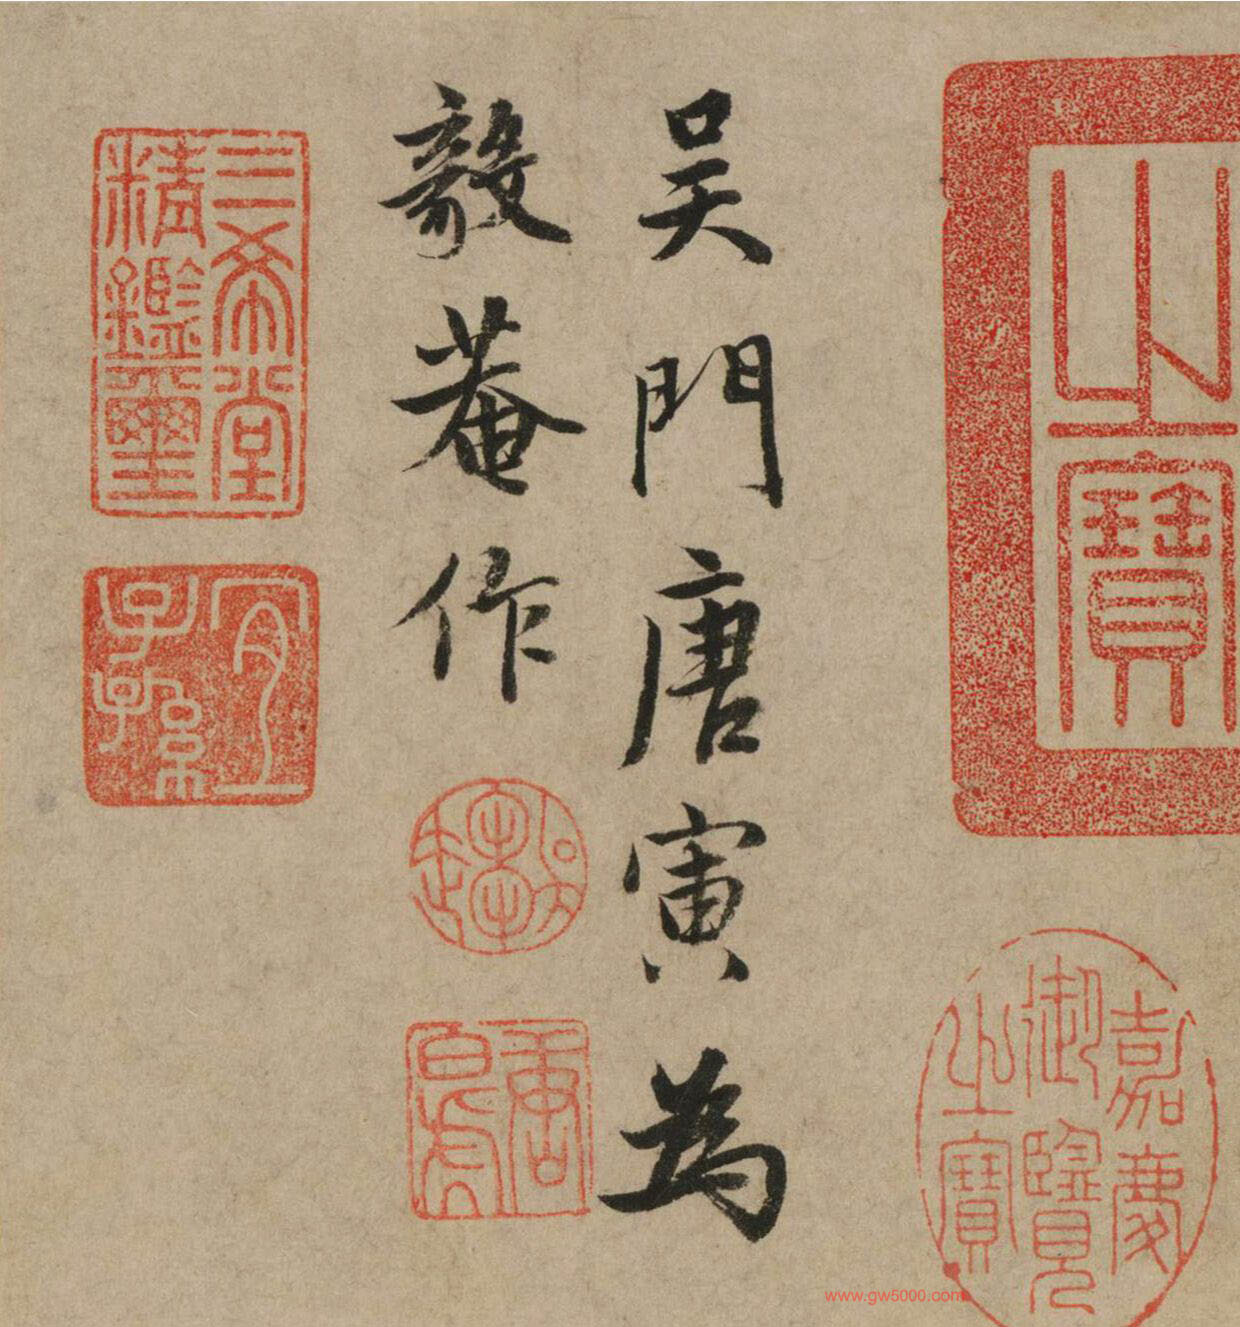 之寶
嘉慶
御覽
之寶
吳門唐寅為
毅菴作
吳趨
唐白虎
三希堂
精鑑璽
宜
子孫
www.gw5000.com